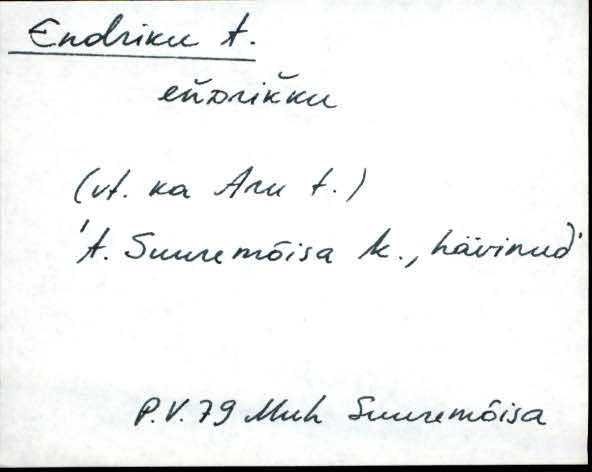 Endriku t.
eň̀ᴅrik̆ku
(vt. ka Aru t.)
't. Suuremõisa k., hävinud'
P.V. 79 Muh Suuremõisa